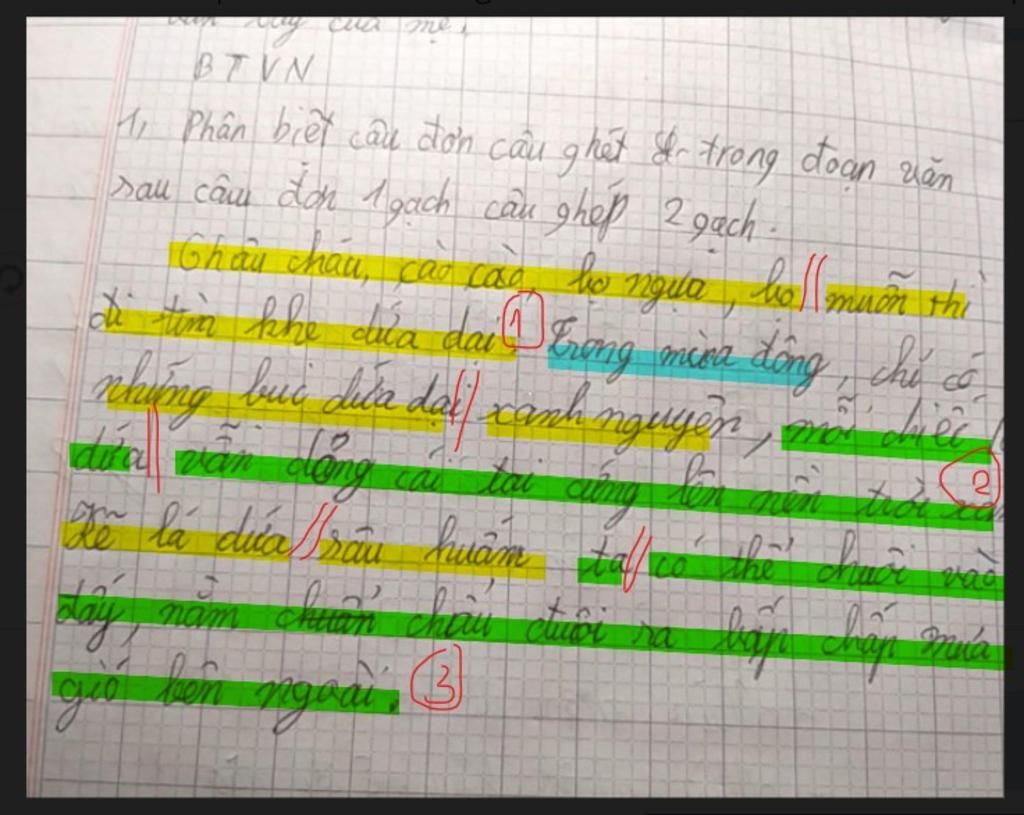 của mẹ.
BTVN
1, Phân biệt câu đơn câu ghét trong đoạn văn
sau câu đơn 1 gạch câu ghép 2 gạch.
Châu cháu, cào cào, bọ ngựa, họ // muốn thì
đi tìm khe dứa dại. 1 Trong mùa đông, chỉ có
những bụi dứa dại // xanh nguyên, mỗi chiếc
dứa // vẫn dỏng cái tai cứng lên nền trời
2
Kẽ lá dứa // sâu huắm ta // có thể chuồi vào
đấy, nằm chẩu đuôi ra bập chấp mưa
gió bên ngoài. 3